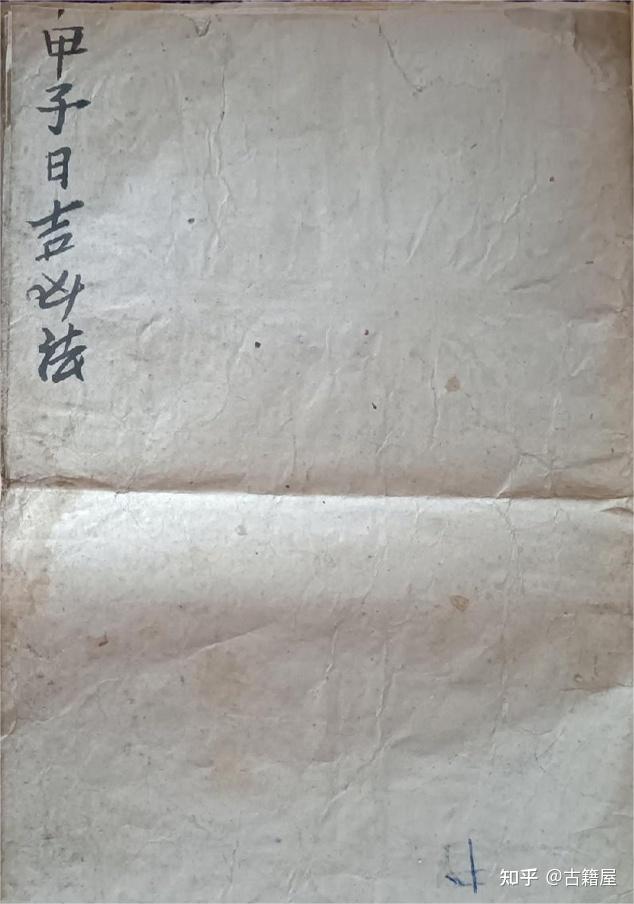 甲子日吉凶法
知乎 @古籍屋